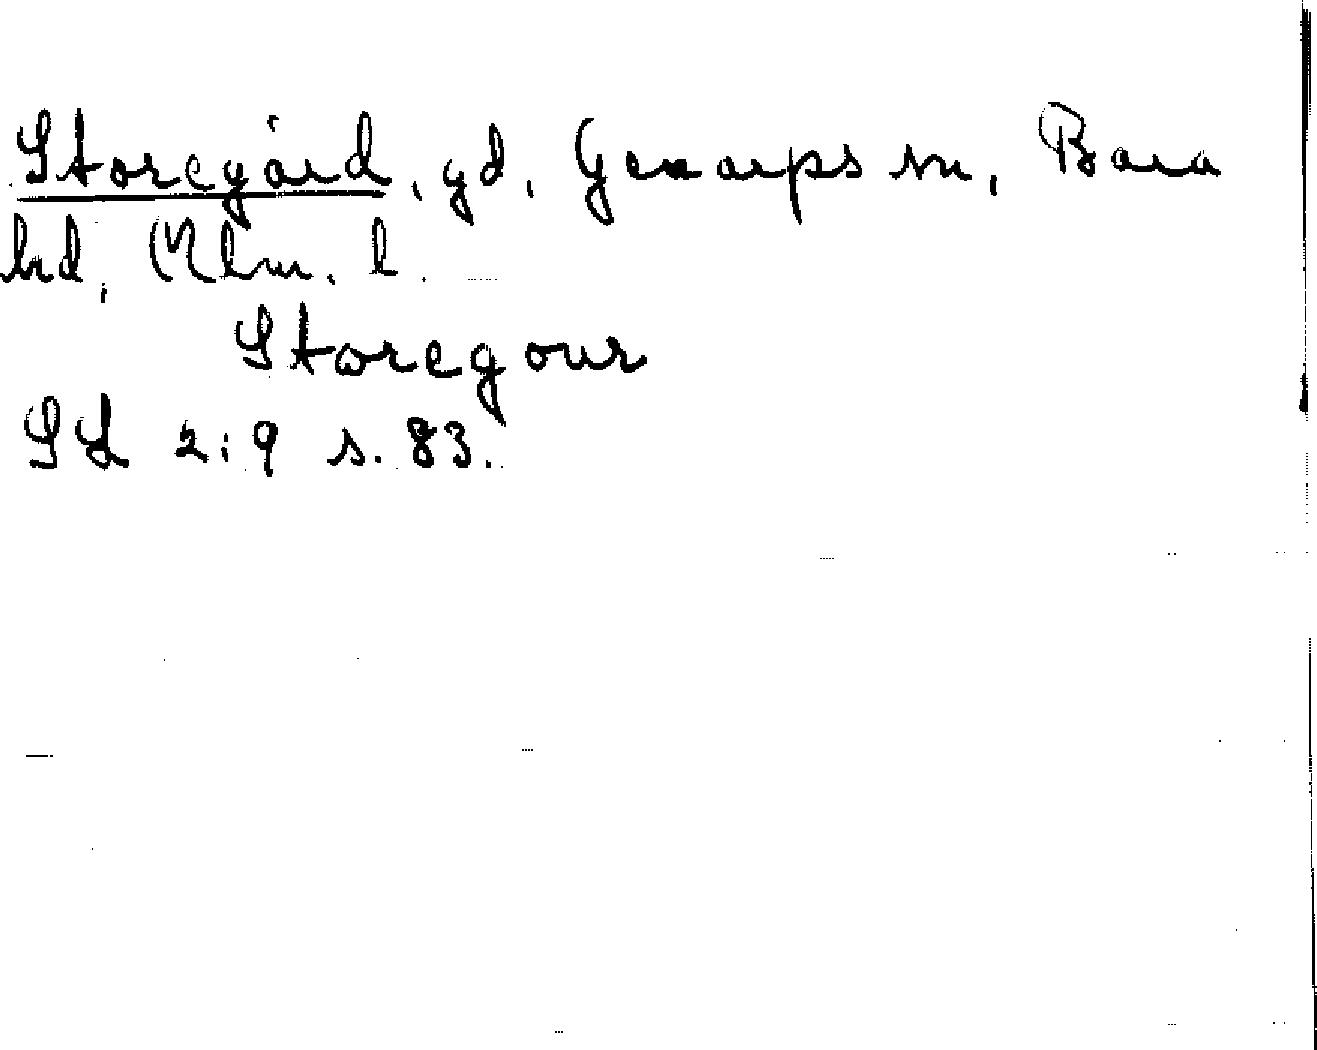 Storegård, gd, Genarps sn, Bara
hd, Mlm. l.
Storegour
Sk 2:9 s. 83.